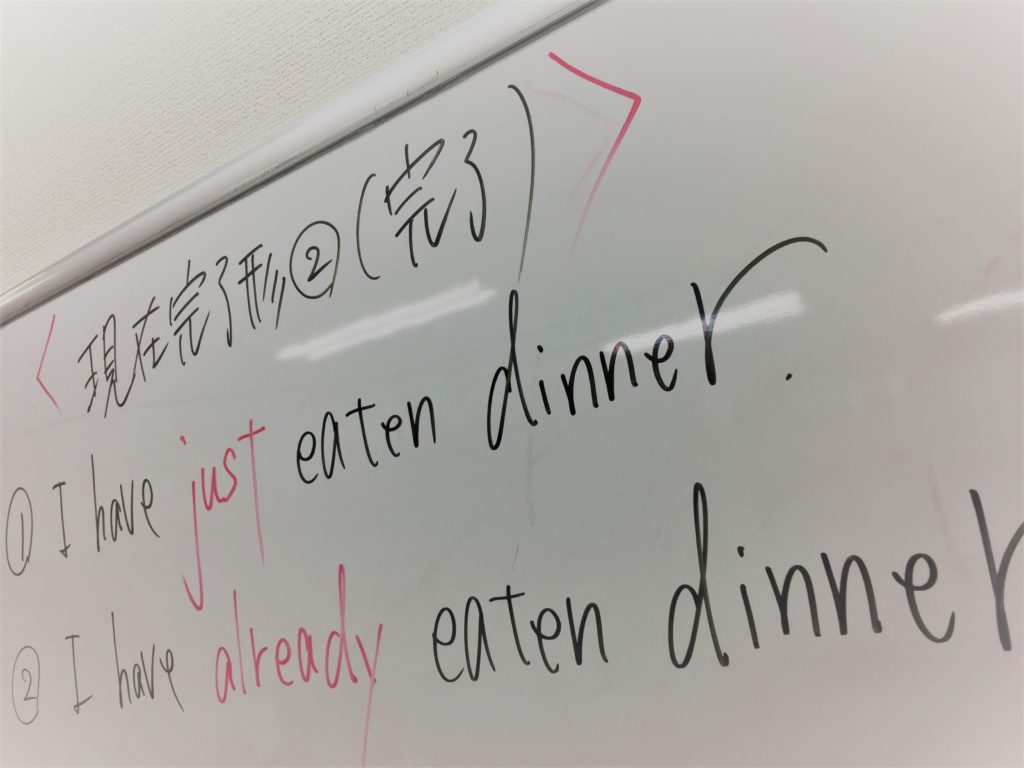 <現在完了形②(完了)>
① I have just eaten dinner.
② I have already eaten dinner